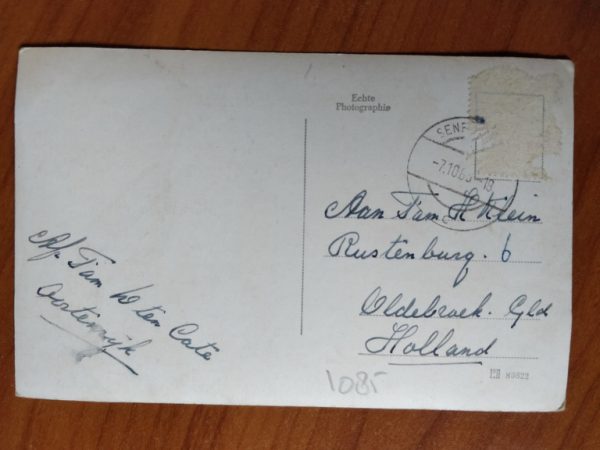 Echte
Photographie
SENF
-7.10.6 -18
Aan Fam H Klein
Rustenburg. 6
Oldebroek. Gld
Holland
Af. Fam W ten Cate
Oosterwijk
1085
89822